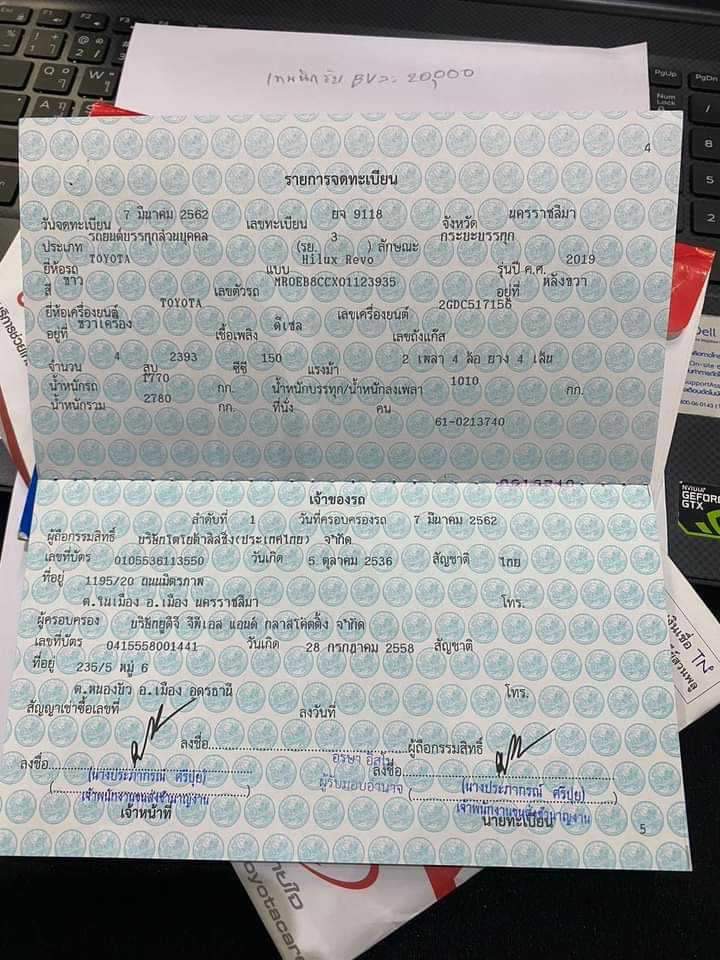 เทหนัก รับ BV ละ 20,000
4
รายการจดทะเบียน
วันจดทะเบียน 7 มีนาคม 2562 เลขทะเบียน ยจ 9118 จังหวัด นครราชสีมา
ประเภท รถยนต์บรรทุกส่วนบุคคล (รย. 3 ) ลักษณะ กระบะบรรทุก
ยี่ห้อรถ TOYOTA แบบ Hilux Revo รุ่นปี ค.ศ. 2019
สี ขาว เลขตัวรถ MR0EB8CCX01123935 อยู่ที่ หลังขวา
ยี่ห้อเครื่องยนต์ TOYOTA เลขเครื่องยนต์ 2GDC517156
อยู่ที่ ขวาเครื่อง เชื้อเพลิง ดีเซล เลขถังแก๊ส
จำนวน 4 สูบ 2393 ซีซี 150 แรงม้า 2 เพลา 4 ล้อ ยาง 4 เส้น
น้ำหนักรถ 1770 กก. น้ำหนักบรรทุก/น้ำหนักลงเพลา 1010 กก.
น้ำหนักรวม 2780 กก. ที่นั่ง คน
61-0213740
เจ้าของรถ
ลำดับที่ 1 วันที่ครอบครองรถ 7 มีนาคม 2562
ผู้ถือกรรมสิทธิ์ บริษัทโตโยต้าลีสซิ่ง(ประเทศไทย) จำกัด
เลขที่บัตร 0105536113550 วันเกิด 5 ตุลาคม 2536 สัญชาติ ไทย
ที่อยู่ 1195/20 ถนนมิตรภาพ
ต.ในเมือง อ.เมือง นครราชสีมา โทร.
ผู้ครอบครอง บริษัทยูดีจี จีพีเอส แอนด์ กลาสโค้ตติ้ง จำกัด
เลขที่บัตร 0415558001441 วันเกิด 28 กรกฎาคม 2558 สัญชาติ
ที่อยู่ 235/5 หมู่ 6
ต.หนองบัว อ.เมือง อุดรธานี โทร.
สัญญาเช่าซื้อเลขที่ ลงวันที่
ลงชื่อ ผู้ถือกรรมสิทธิ์
ลงชื่อ ลงชื่อ
(นางประภากรณ์ ศรีปุย) ผู้รับมอบอำนาจ (นางประภากรณ์ ศรีปุย)
เจ้าพนักงานขนส่งชำนาญงาน เจ้าพนักงานขนส่งชำนาญงาน
เจ้าหน้าที่ นายทะเบียน
5
Dell
NVIDIA
GEFORCE
GTX
toyotacare